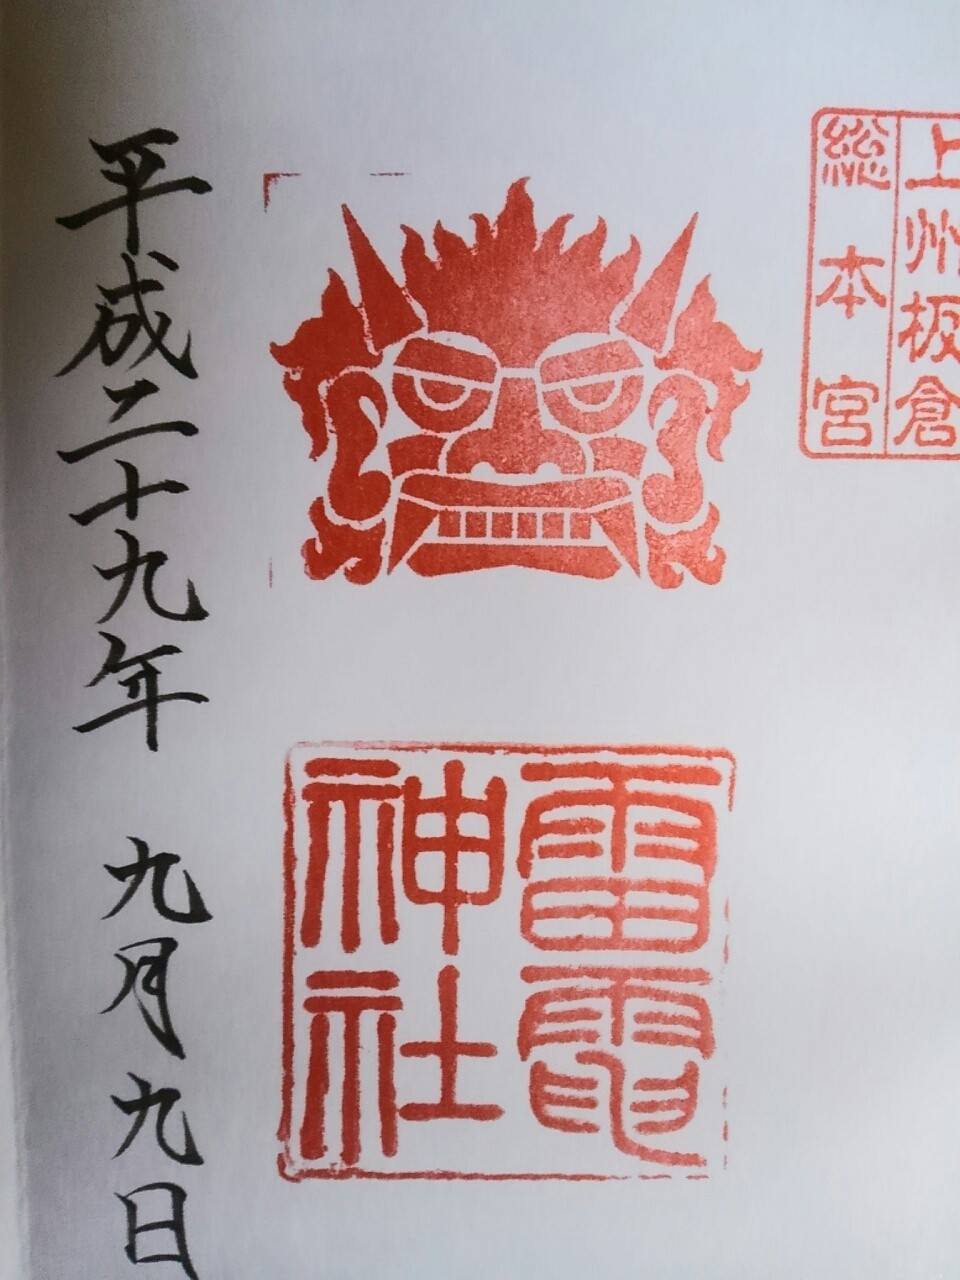 上州板倉
総本宮
雷電
神社
平成二十九年 九月九日